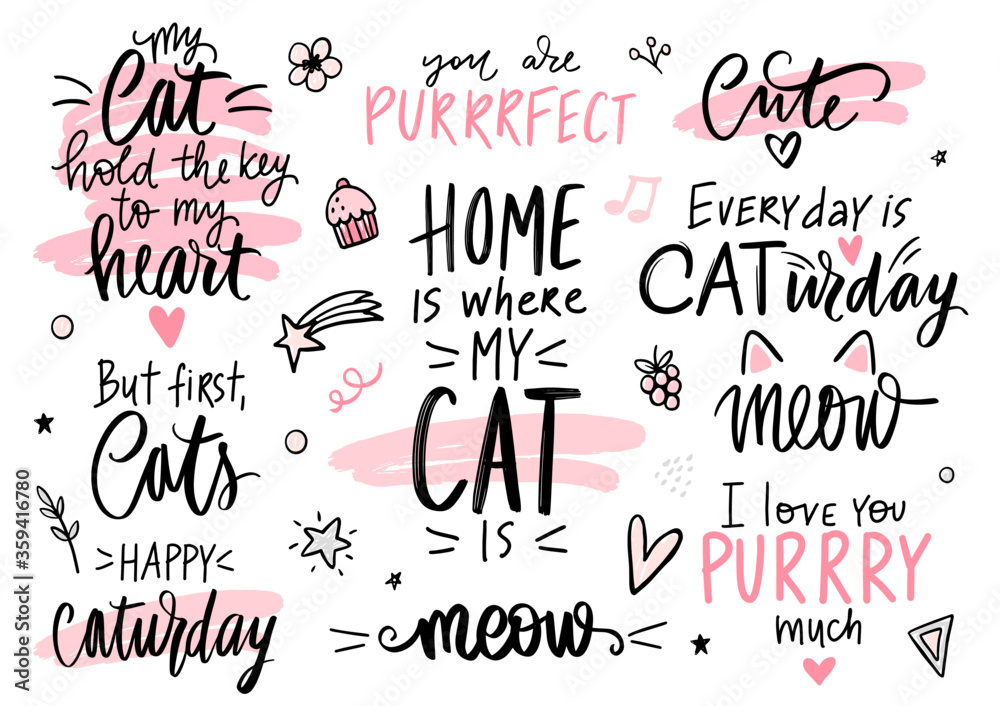 my
Cat
hold the key
to my
heart
But first,
Cats
HAPPY
Caturday
you are
PURRRFECT
HOME
IS WHERE
MY
CAT
IS
meow
Cute
EVERY day IS
CATurday
meow
I love you
PURRRY
much
Adobe Stock | #359416780